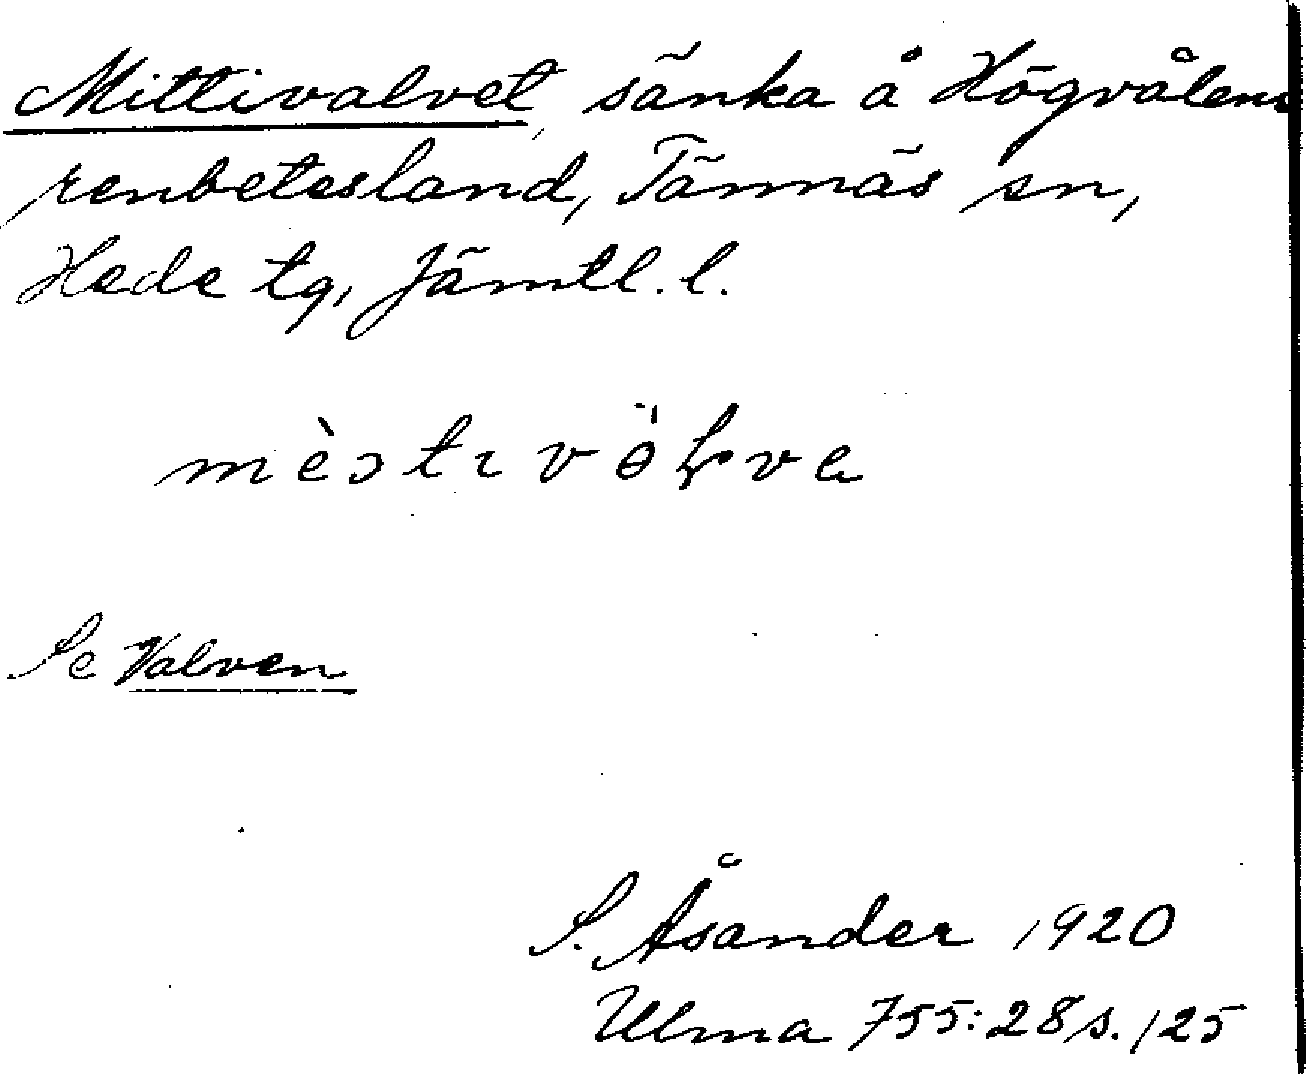 Mittivalvet, sänka å Högvålens
renbetesland, Tännäs sn,
Hede tg, Jämtl. l.
Se Valven
S. Åsander 1920
Ulma 755:28 s. 125